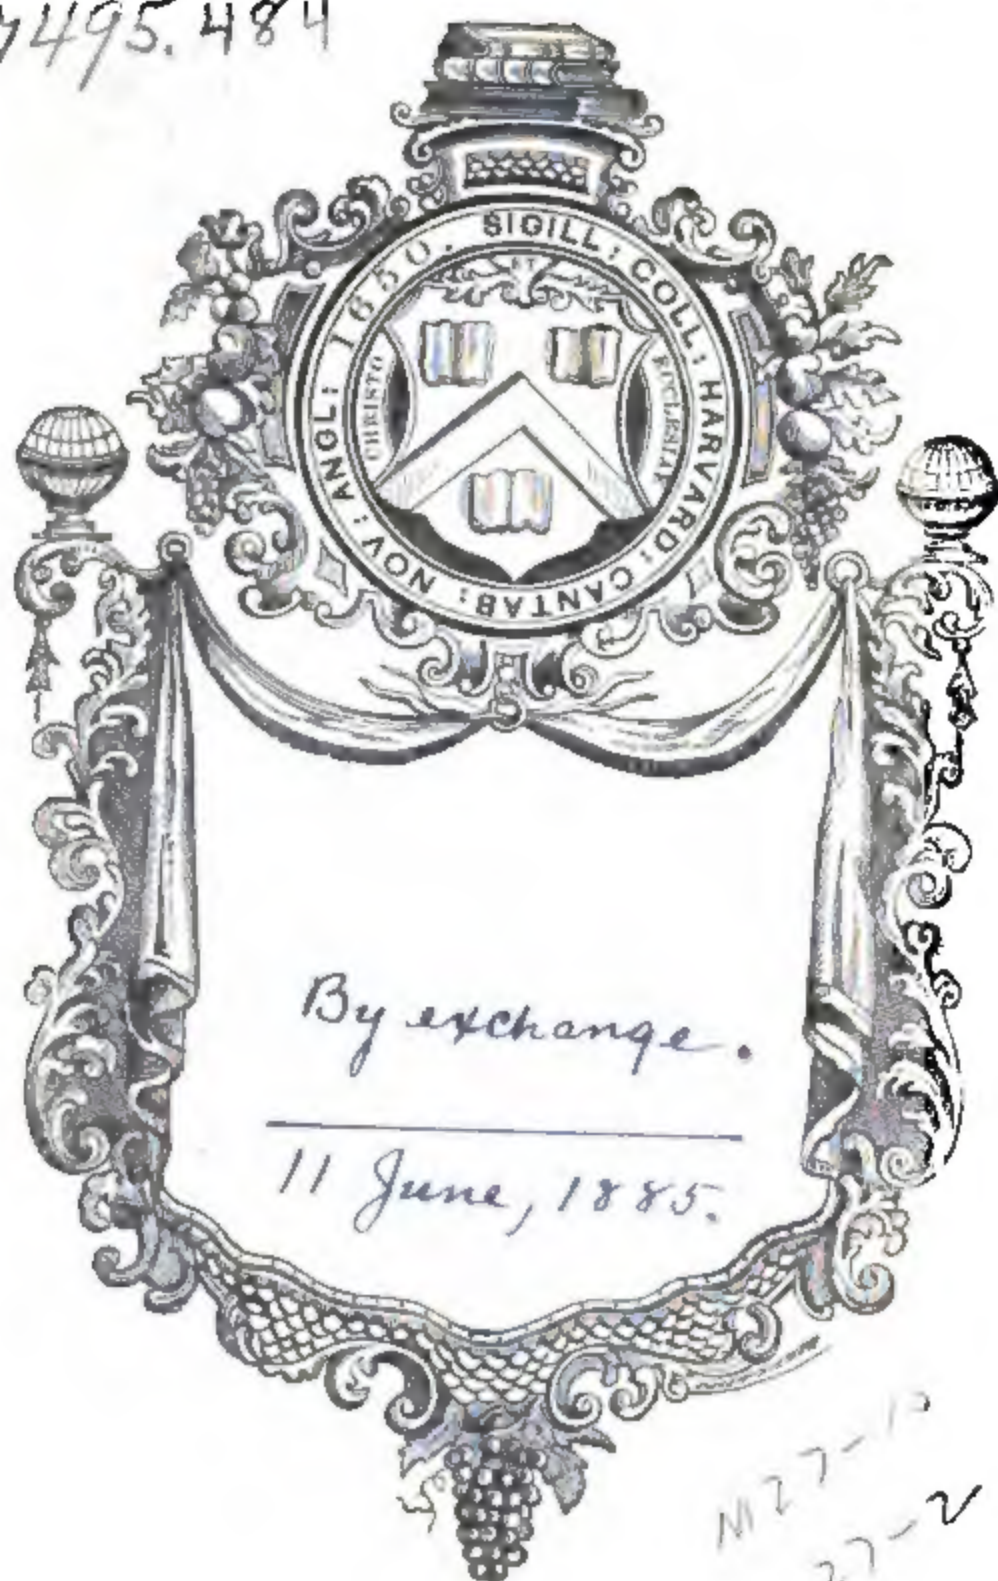 7495.484
SIGILL: COLL: HARVARD: CANTAB: NOV: ANGL: 1650.
ET
CHRISTO
ECCLESIAE
By exchange.
11 June, 1885.
27-2